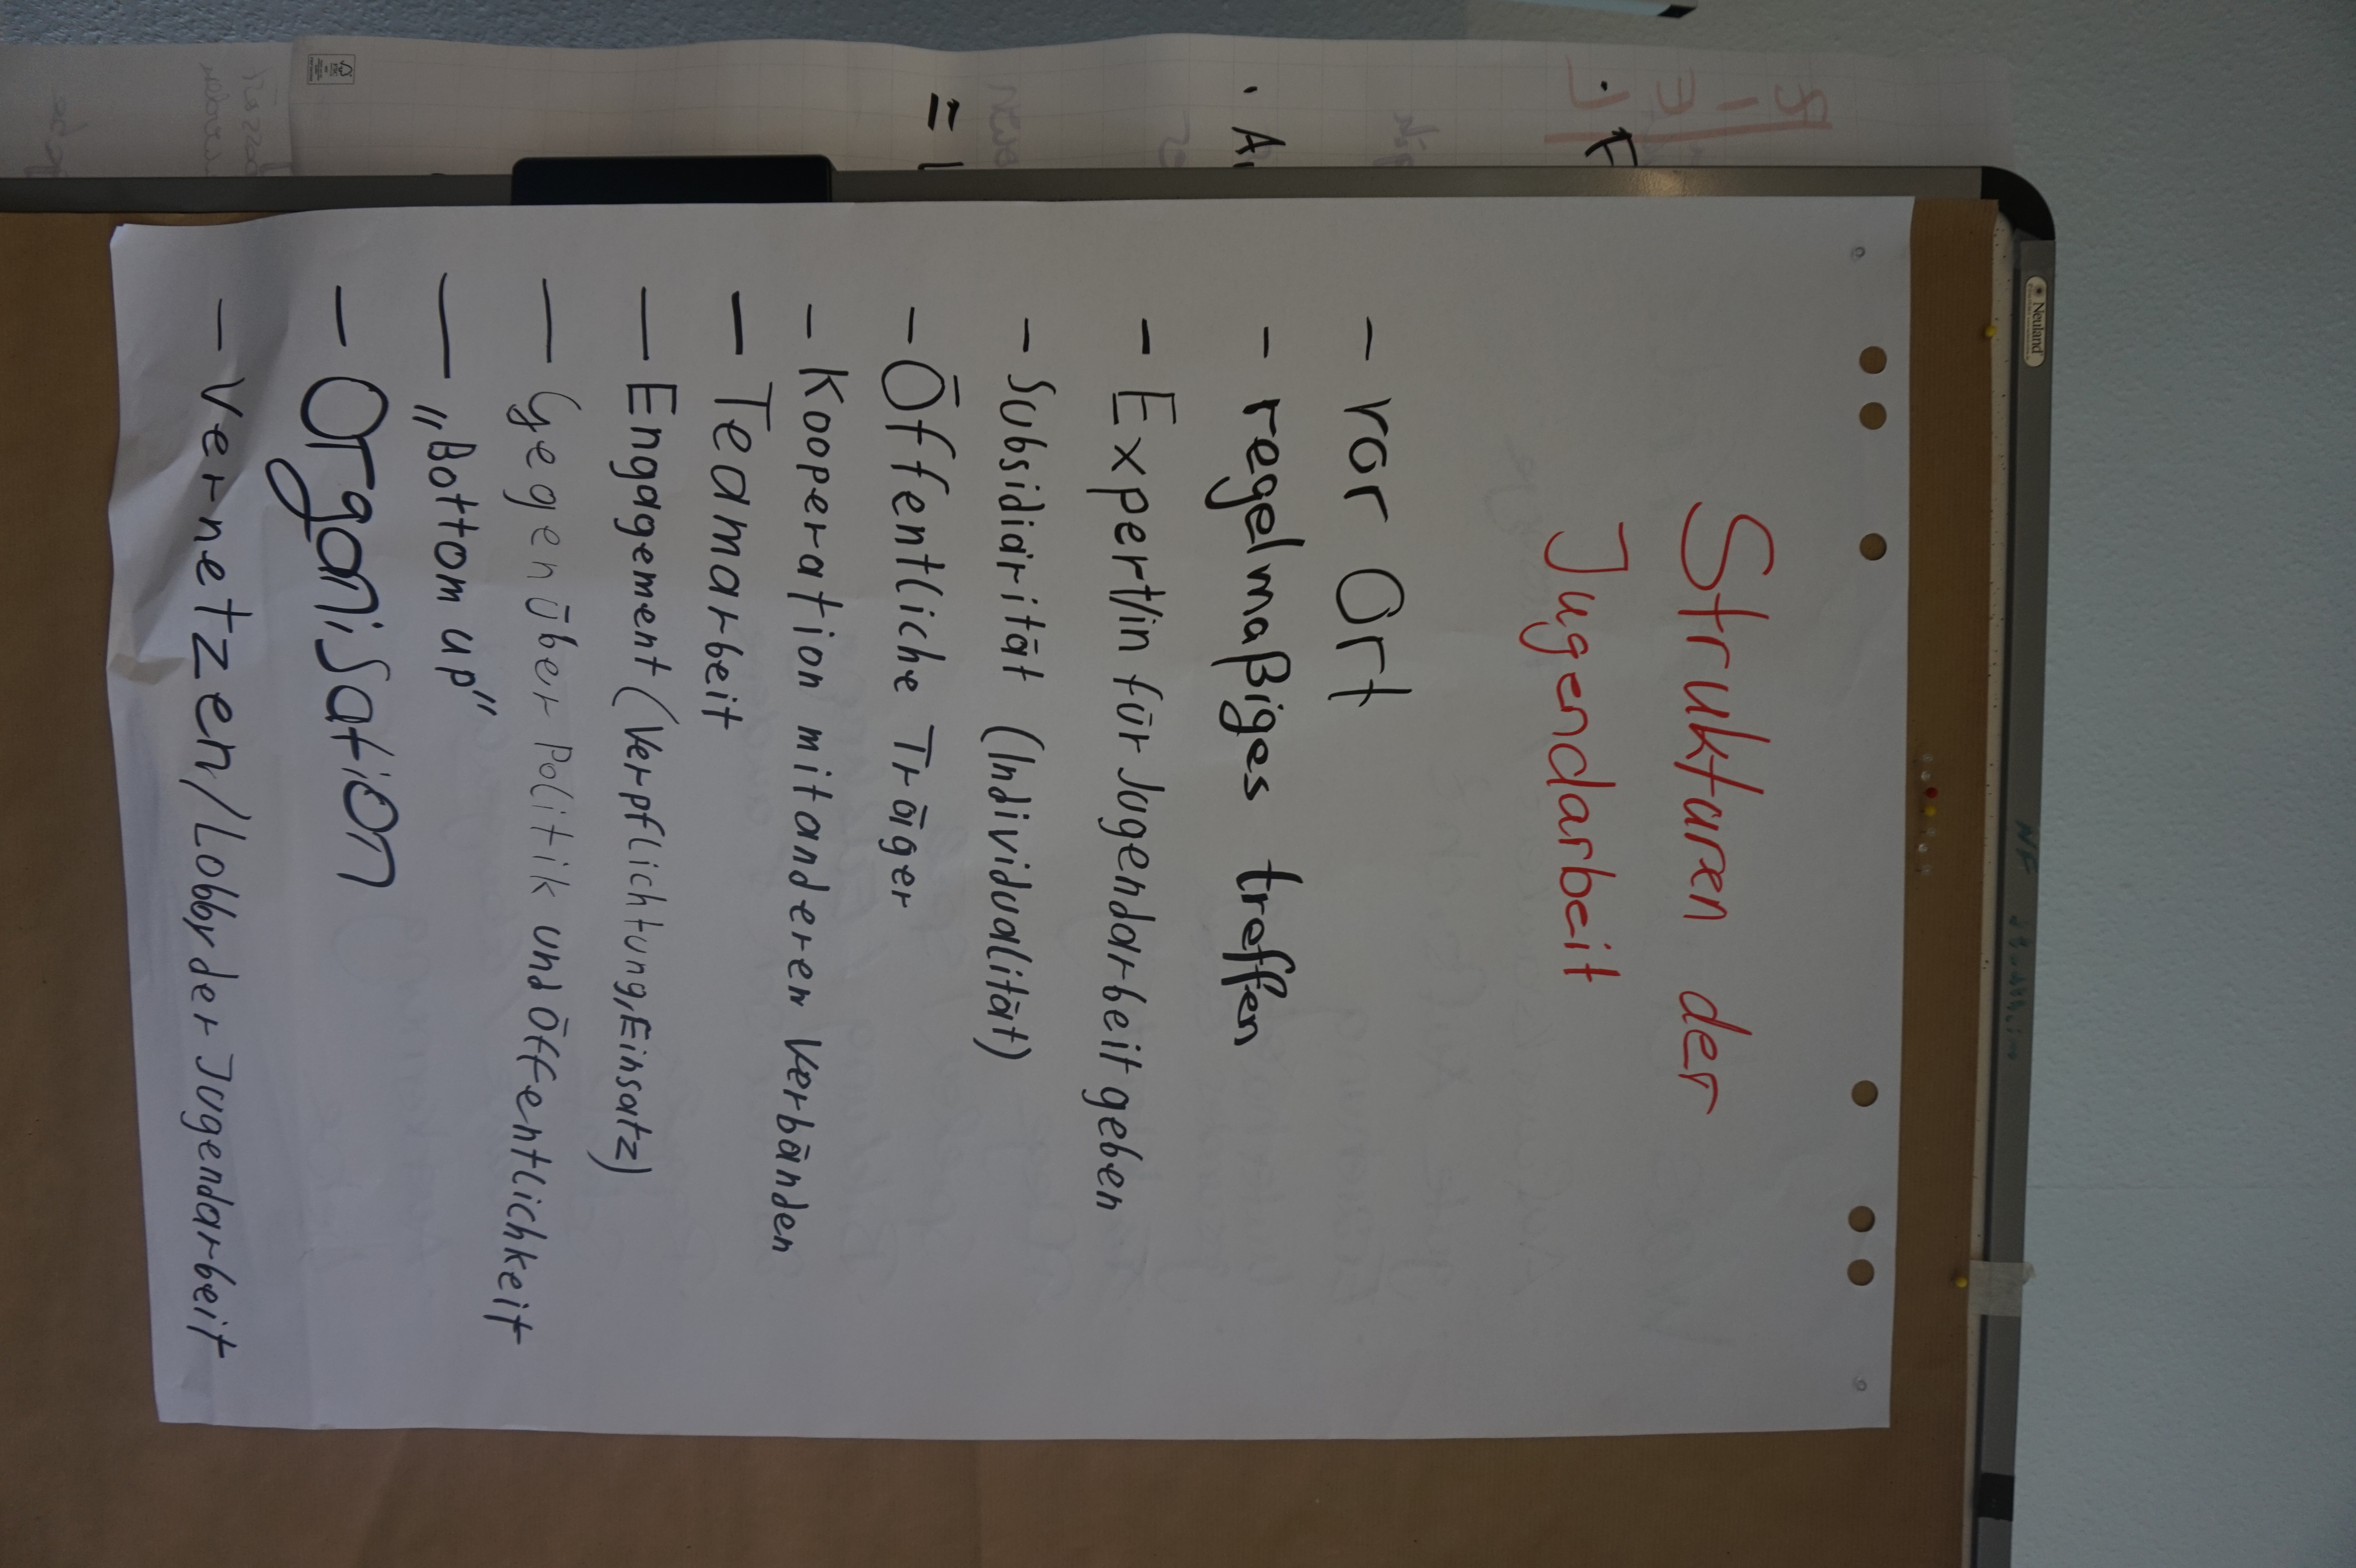 Strukturen der
Jugendarbeit
- vor Ort
- regelmaßiges treffen
- Expert/in für Jugendarbeit geben
- Subsidiarität (Individualität)
- Öffentliche Träger
- Kooperation mit anderen Verbänden
- Teamarbeit
- Engagement (Verpflichtung, Einsatz)
- Gegenüber Politik und Öffentlichkeit
- „Bottom up"
- Organisation
- Vernetzen/Lobby der Jugendarbeit
Neuland